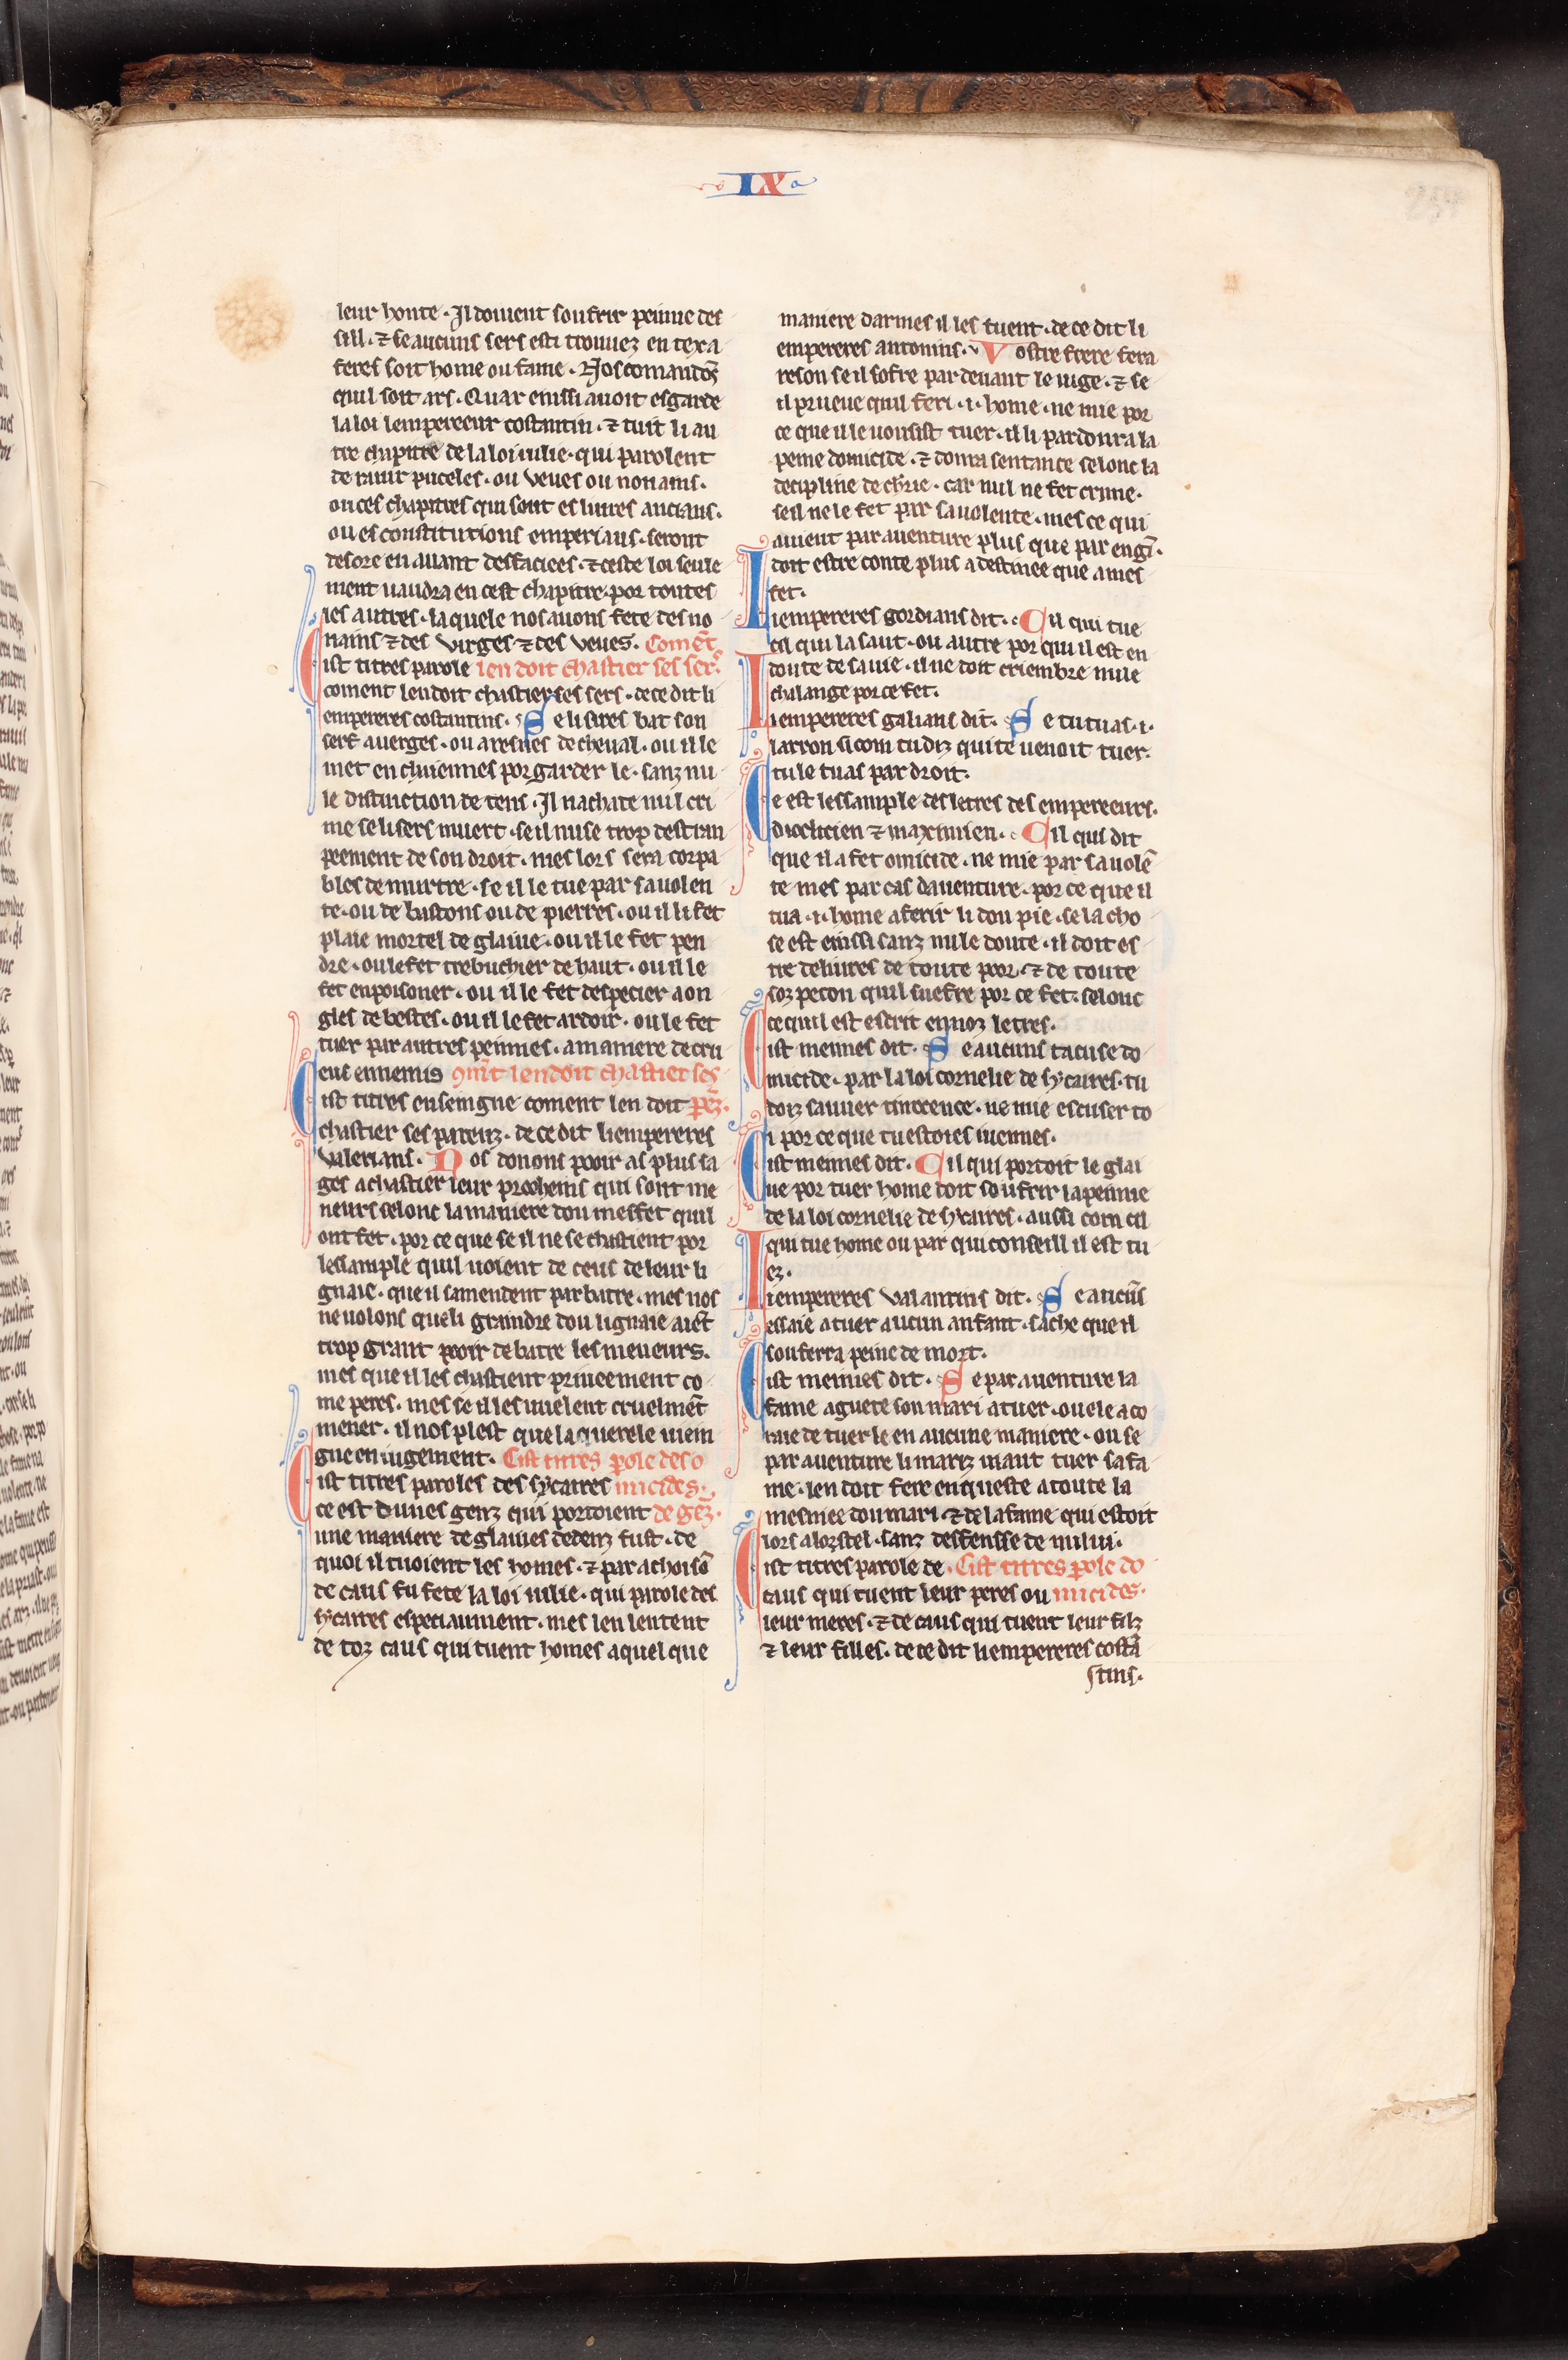 IX
leur honte. Il doiuent soufrir peinne des
sill. ⁊ se aucuns sers est trouuez en cex a
feres soit home ou fame. Nos comandōs
quil soit ars. Quar enissi auoit esgarde
la loi lempereeur costantin. ⁊ tuit li au
tre chapitre de la loi iulie. qui parolent
de rauir puceles. ou veues ou nonains.
ou ces chapitres qui sont es liures ancians.
ou es constitutions emperiaus. seront
desore en auant desfaciees. ⁊ ceste loi seule
ment uaudra en cest chapitre. por toutes
les autres. la quele nos auons fete des no
nains ⁊ des virges ⁊ des veues. Comēt
Cist titres parole len doit chastier ses sers.
coment len doit chastier ses sers. de ce dit li
empereres costantins. Se li sires bat son
serf auerges. ou a resnes de cheual. ou il le
met en chaiennes por garder le. sanz nu
le distinction de tens. Il nachate nul cri
me se li sers muert. se il nuse trop destran
peement de son droit. mes lors sera corpa
bles de murtre. se il le tue par sa uolen
te. ou de bastons ou de pierres. ou il li fet
plaie mortel de glaiue. ou il le fet pen
dre. ou le fet trebuchier de haut. ou il le
fet enpoisoner. ou il le fet despecier a on
gles de bestes. ou il le fet ardoir. ou le fet
tuer par autres peinnes. a maniere de cru
eus ennemis 9mēt len doit chastier ses
Cist titres enseingne coment len doit
chastier ses parenz. de ce dit li empereres
Valerians. Nos donons pooir as plus sa
ges a chastier leur procheins qui sont me
neurs selonc la maniere dou mesfet quil
ont fet. por ce que se il ne se chastient por
lessample quil uoient de ceus de leur li
gnaie. que il samendent par batre. mes nos
ne uolons que li graindre dou lignaie aiēt
trop grant pooir de batre les meneurs.
mes que il les chastient priueement co
me peres. mes se il les uuelent cruelmēt
mener. il nos plest que la querele uiein
gne en iugement. Cist titres pole des o
Cist titres paroles des sycaires micides.
ce est dunes genz qui portoient de gēz.
une maniere de glaiues dedenz fust. de
quoi il tuoient les homes. ⁊ par achoisō
de caus fu fete la loi iulie. qui parole des
sycaires especiaument. mes len lentent
de toz caus qui tuent homes a quel que
maniere darmes il les tuent. de ce dit li
empereres antonins. Vostre frere fera
reson se il sofre par deuant le iuge. ⁊ se
il prueue quil feri .i. home. ne mie por
ce que il le uousist tuer. il li pardonra la
peine domicide. ⁊ donra sentance selonc la
decipline de chlrie. car nul ne fet crime.
seil ne le fet par sa uolente. mes ce qui
auient par auenture plus que par engī.
doit estre conte plus a destinee que a mes
fet.
Li empereres gordians dit. Cil qui tue
cil qui lasaut. ou autre por qui il est en
doute de sa uie. il ne doit criembre nule
chalange por ce fet.
Li empereres galians dit. Se tu tuas .i.
larron si com tu diz qui te uenoit tuer.
tu le tuas par droit.
Ce est lessample des letres des empereeurs.
dioclicien ⁊ maximien. Cil qui dit
que il a fet omicide. ne mie par sa uolē
te mes par cas dauenture. por ce que il
tua .i. home a ferir li dou pie. se la cho
se est enissi sanz nule doute. il doit es
tre deliures de toute poor. ⁊ de toute
sozpecon quil suefre por ce fet. selonc
ce quil est escrit en noz letres.
Cist meimes dit. Se aucuns tacuse do
micide. par la loi cornelie de sycaires. tu
doiz sauuer tinnocence. ne mie escuser to
i por ce que tu estoies iuennes.
Cist meimes dit. Cil qui portoit le glai
ue por tuer home doit soufrir la peinne
de la loi cornelie de sycaires. aussi com cil
qui tue home ou par qui conseill il est tu
ez.
Li empereres Valantins dit. Se aucūs
essaie a tuer aucun anfant. sache que il
souferra peine de mort.
Cist meimes dit. Se par auenture la
fame aguete son mari a tuer. ou ele a co
raie de tuer le en aucune maniere. ou se
par auenture li mariz uiaut tuer sa fa
me. len doit fere enqueste a toute la
mesniee dou mari. ⁊ de la fame qui estoit
lors a lorstel. sanz desfensse de nului.
Cist titres parole de. Cist titres pole do
caus qui tuent leur peres ou micides.
leur meres. ⁊ de caus qui tuent leur filz
⁊ leur filles. de ce dit li empereres costā
stins.